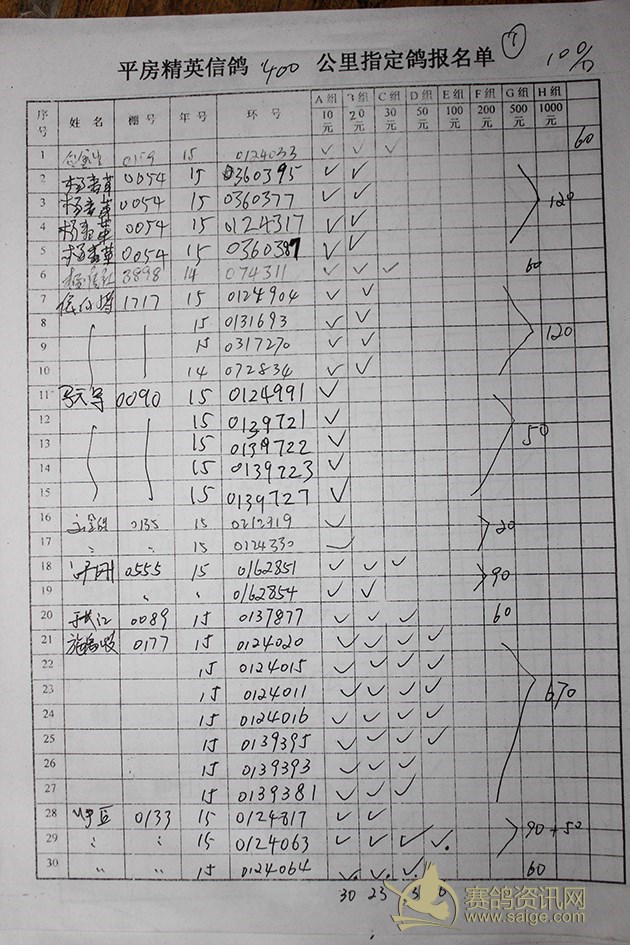 ⑦
平房精英信鸽 400 公里指定鸽报名单 100/0
序号 姓名 棚号 年号 环号 A组10元 B组20元 C组30元 D组50元 E组100元 F组200元 G组500元 H组1000元
60
1 0159 15 0124033 ✓ ✓ ✓
2 杨春革 0054 15 0360395 ✓ ✓
3 杨春革 0054 15 0360377 ✓ ✓ 120
4 杨春革 0054 15 0124317 ✓ ✓
5 杨春革 0054 15 0360387 ✓ ✓
6 3898 14 074311 ✓ ✓ ✓ 60
7 1717 15 0124904 ✓ ✓
8 15 0131693 ✓ ✓ 120
9 15 0317270 ✓ ✓
10 14 072834 ✓ ✓
11 0090 15 0124991 ✓
12 15 0139721 ✓
13 15 0139722 ✓ 50
14 15 0139723 ✓
15 15 0139727 ✓
16 0135 15 0212319 ✓ 20
17 〃 〃 15 0124330 ✓
18 0555 15 0162851 ✓ ✓ ✓ 90
19 〃 〃 0162854 ✓ ✓
20 于长江 0089 15 0137877 ✓ ✓ ✓ 60
21 0177 15 0124020 ✓ ✓ ✓ ✓
22 15 0124015 ✓ ✓ ✓ ✓
23 15 0124011 ✓ ✓ ✓ ✓ 670
24 15 0124016 ✓ ✓ ✓ ✓
25 15 0139395 ✓ ✓ ✓ ✓
26 15 0139393 ✓ ✓ ✓
27 15 0139381 ✓ ✓ ✓
28 0133 15 0124817 ✓ ✓ 90+50
29 〃 〃 15 0124063 ✓ ✓ ✓ ✓
30 〃 〃 15 0124064 ✓ ✓ ✓ 60
30 23
赛鸽资讯网
www.saige.com